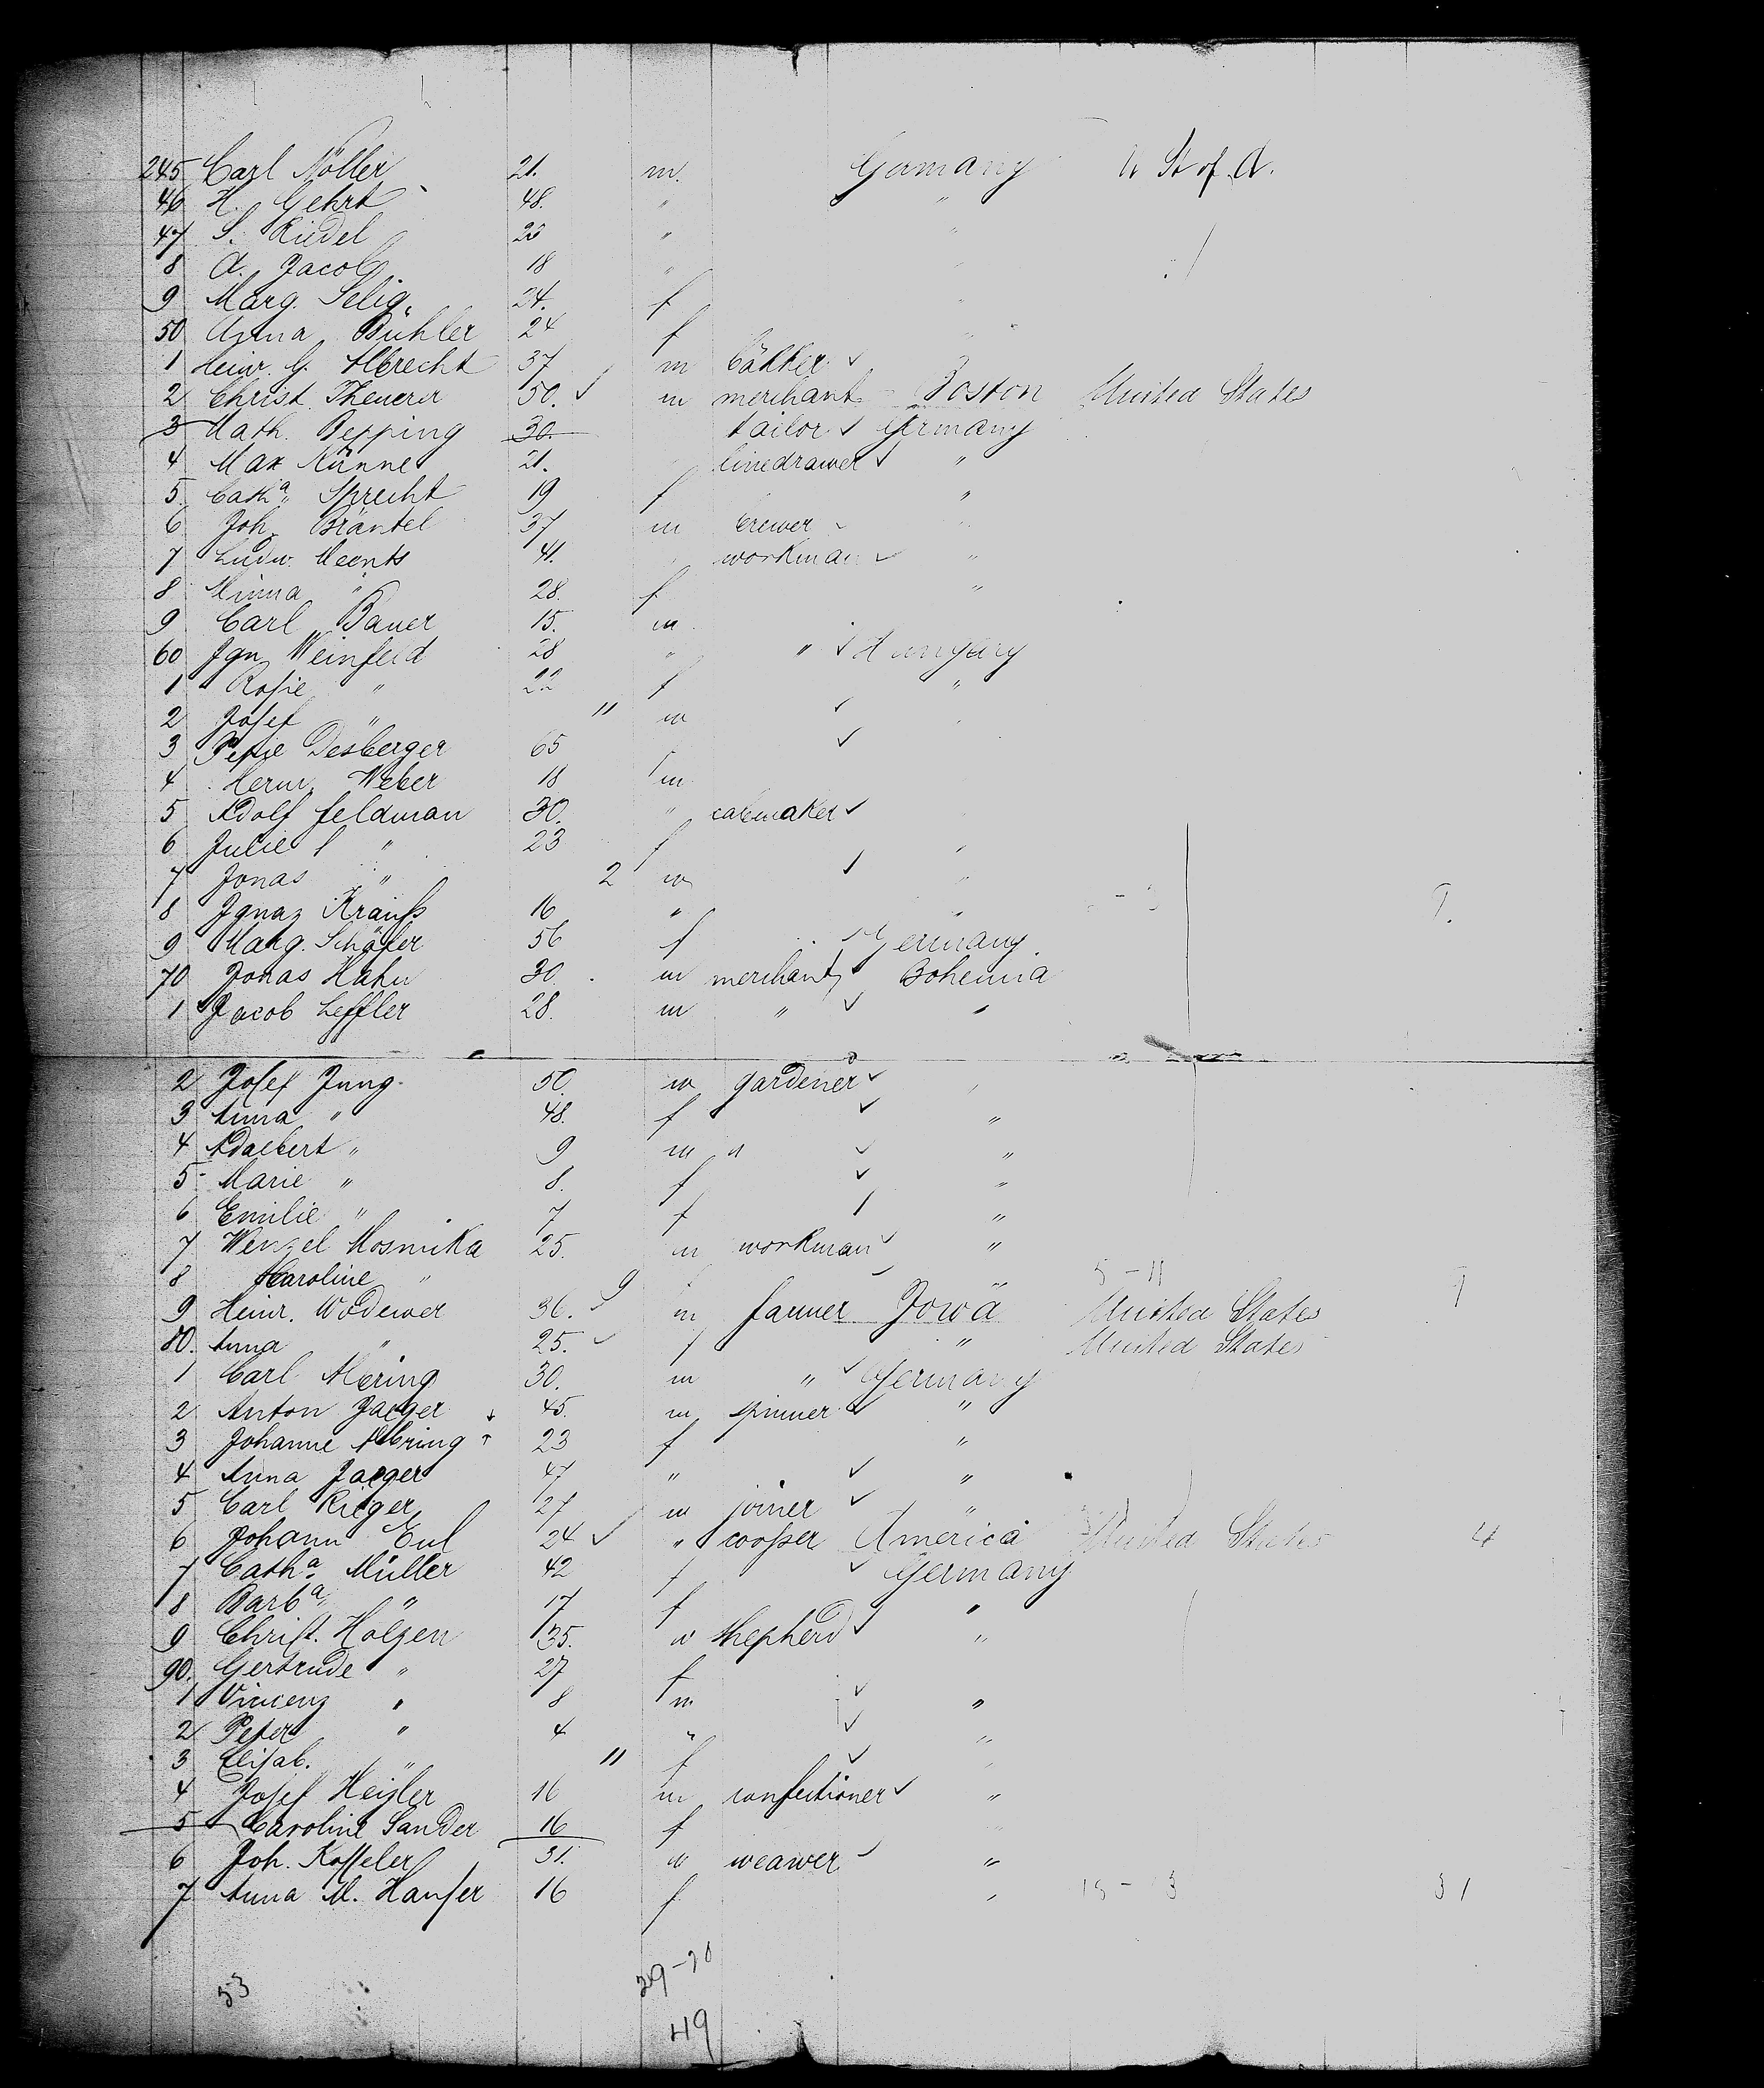 245 Carl Nöller 21. m. Germany U St of A.
46 H. Gehrt 48. " "
47 S. Riedel 20 " "
8 A. Jacob 18 "
9 Marg. Selig 24. f "
50 Anna Bühler 24 f "
1 Heinr. G. Albrecht 37 m bäkker ✓
2 Christ. Theurer 50. ✓ m merchant Boston United States
3 Math. Pepping 30. tailor ✓ Germany
4 Max Künne 21. linedrawer ✓ "
5. Catha. Sprecht 19 f "
6 Joh. Bräntel 37 m brewer "
7 Ludw. Meents 41. workman ✓ "
8 Minna " 28. f "
9 Carl Bauer 15. m
60 Ign. Weinfeld 28 " " ✓ Hungary
1 Rosie " 22 f "
2 Josef " 11 m ✓
3 Pepie Desberger 65 f ✓
4 Herm. Weber 18 m
5 Adolf Feldman 30. " cabemaker ✓
6 Julie " 23 f "
7 Jonas " 2 m ✓ "
8 Ignaz Krauss 16 " "
9 Marg. Schäfer 56 f Germany
70 Jonas Hahn 30. m merchant Bohemia
1 Jacob Leffler 28. m " ✓ "
2 Josef Jung 50. m gardener ✓ "
3 Anna " 48. f ✓ "
4 Adalbert " 9 m " ✓ "
5 Marie " 8. f ✓ "
6 Emilie " 7 f "
7 Wenzel Mosmika 25. m workman ✓ "
8 Karoline " 9 f " 5 - 11
9 Heinr. Wodewer 36. ✓ m farmer Jowa United States
80. Anna " 25. ✓ f " United States
1 Carl Mering 30. m " ✓ Germany
2 Anton Jaeger 45. m spinner ✓ "
3 Johanne Mering 23 f "
4 Anna Jaeger 47 " ✓ "
5 Carl Rieger 27 m joiner ✓ "
6 Johann Eul 24 ✓ " cooper America United States 4
7 Catha. Müller 42 f ✓ Germany
8 Barba. " 17 f "
9 Christ. Holzen 35. m shepherd ✓ "
90. Gertrude " 27 f
1 Vincenz " 8 m ✓ "
2 Peter " 4 " ✓ "
3 Elisab. " 11 f ✓ "
4 Josef Heisler 16 m confectioner ✓ "
5 Caroline Sander 16 f
6 Joh. Kosseler 31. m weawer ✓ "
7 Anna M. Hanser 16 f " 31
53 29-20
49